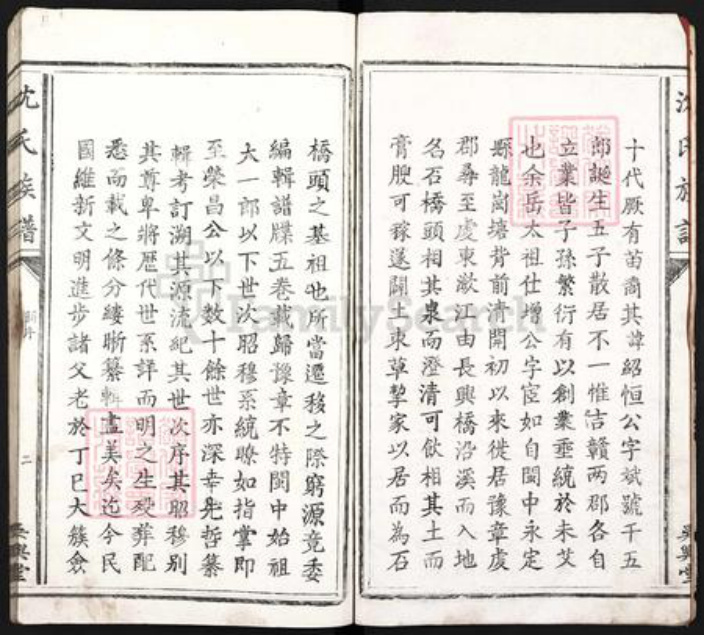 十代厥有苗裔其諱紹恒公字斌號千五
郎誕生五子散居不一惟吉贛两郡各自
立業皆子孫繁衍有以創業垂統於未艾
也余岳太祖仕增公字宦如自閩中永定
縣龍崗壩背前清開初以來徙居豫章虔
郡尋至虔東瀲江由長興橋沿溪而入地
名石橋頭相其泉而澄清可飲相其土而
膏腴可稼遂闢土東草挈家以居而為石
橋頭之基祖也所當遷移之際窮源竟委
編輯譜牒五卷載歸豫章不特閩中始祖
大一郎以下世次昭穆系統瞭如指掌即
至榮昌公以下数十餘世亦深幸先哲纂
輯考訂溯其源流紀其世次序其昭穆别
其尊卑將歷代世系詳而明之生殁葬配
悉而載之條分縷晰纂輯盡美矣迄今民
國維新文明進步諸父老於丁巳大簇僉
沈氏族譜
二
吳興堂
沈氏族譜
吳興堂
FamilySearch